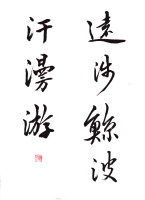 遠涉鯨波
汗漫游